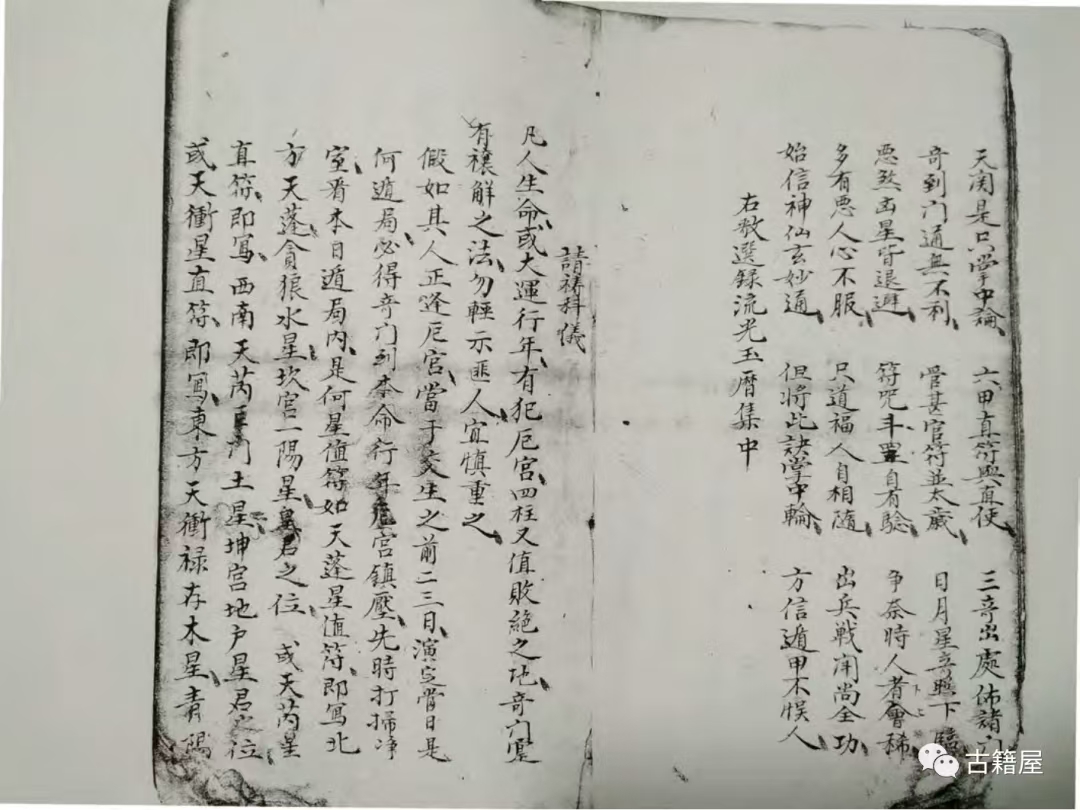 天関是只掌中論 六甲直符與直使 三竒出處佈諸门
竒到门通無不利 管甚官符並太歲 日月星竒照下臨
悪煞凶星皆退避 符咒斗罡自有驗 争奈時人者會稀
多有悪人心不服 只道福人自相随 出兵戦闹尚全功
始信神仙玄妙通 但將此訣掌中輪 方信遁甲不悞人
右敬選録流光玉曆集中
請禱科儀
凡人生命或大運行年有犯厄宫四柱又值敗絶之地竒门寔
有禳解之法勿輕示匪人宜慎重之
假如其人正逢厄宫當于交生之前二三日演定骨日是
何遁局必得竒门到本命行年厄宫鎮壓先時打掃净
室看本日遁局内是何星值符如天蓬星值符即寫北
方天蓬貪狼水星坎宫一陽星君之位 或天芮星
直符即寫西南天芮巨门土星坤宫地户星君之位
或天衝星直符即寫東方天衝禄存木星青陽
古籍屋